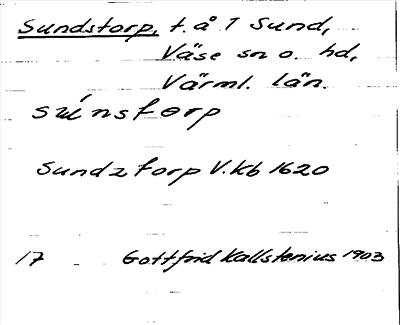 Sundstorp, t. å 1 Sund,
Väse sn o. hd,
Värml. län.
súnstorp
Sundztorp V.Kb 1620
17 Gottfrid Kallstenius 1903